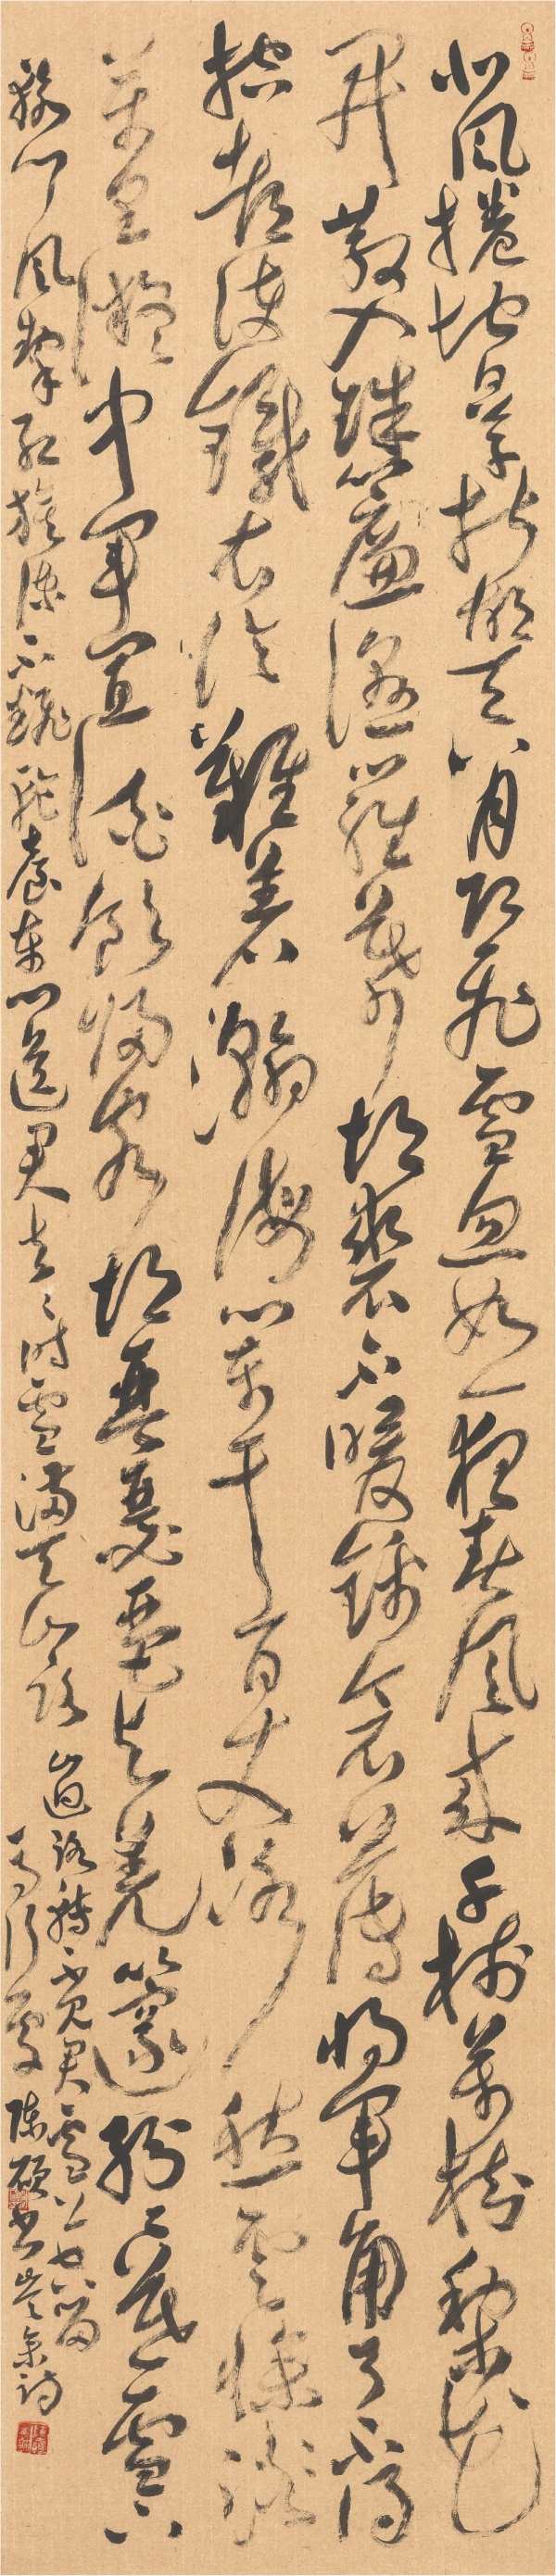 北風捲地白草折胡天八月即飛雪忽如一夜春風來千樹萬樹梨花
開散入珠簾濕羅幕狐裘不暖錦衾薄將軍角弓不得
控都護鐵衣冷難着瀚海闌干百丈冰愁雲慘淡
萬里凝中軍置酒飲歸客胡琴琵琶與羌笛紛紛暮雪下
轅門風掣紅旗凍不翻輪臺東門送君去々時雪滿天山路
山迴路轉不見君雪上空留
馬行處 陳碩書岑參詩